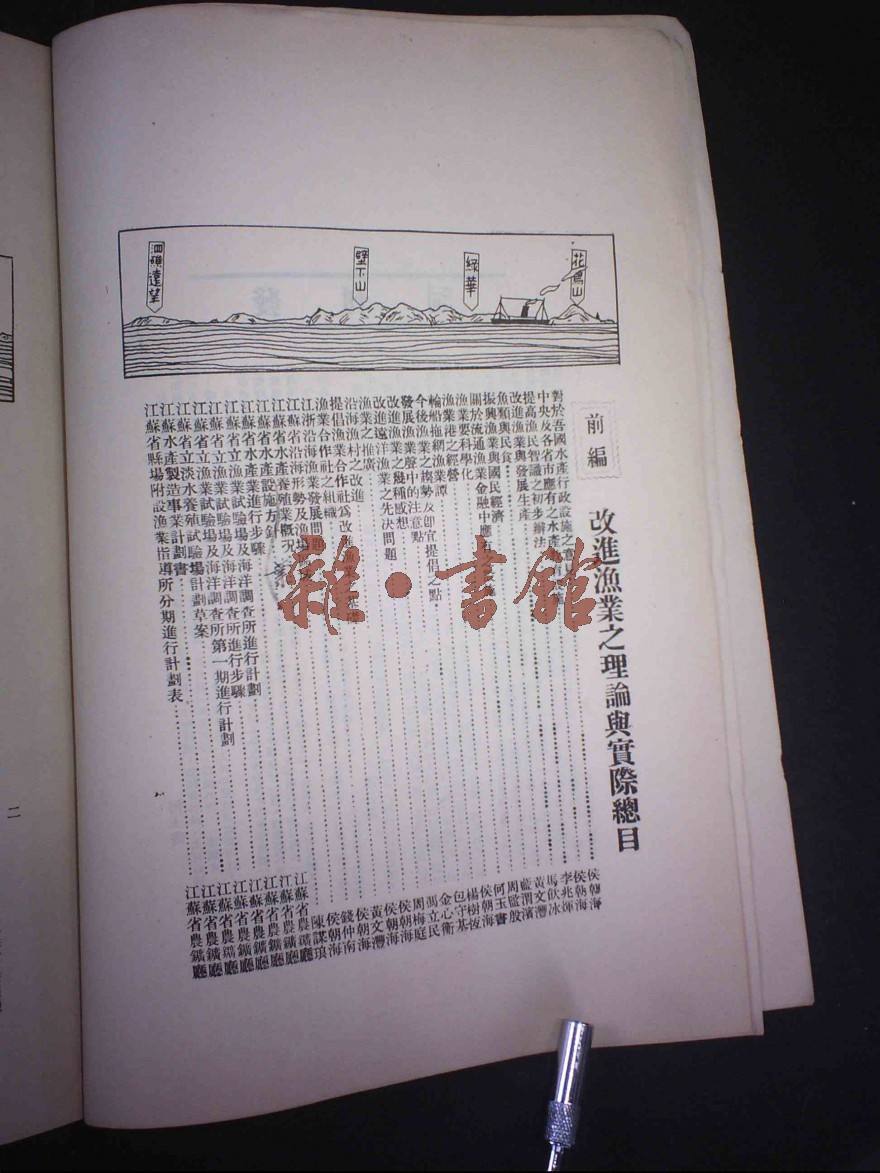 泗礁遠望
壁下山
綠華
花鳥山
前編
改進漁業之理論與實際總目
對於吾國水產行政設施之意見……侯朝海
中央及各省市應有之水產……侯朝海
提高漁民智識之初步辦法……李兆輝
改進漁業與發展生產……馬飲冰
魚類與民食……黃文灃
振興漁業與國民經濟……藍渭濱
關於流通漁業金融中應……周監殷
漁業要科學化……何玉書
漁業港之經營……侯朝海
輪船拖網漁業譚……楊樹恆
今後漁業之趨勢及卽宜提倡之點……包守基
發展漁業聲中的注意點……金心衡
改進漁業之幾種感想……馮立民
改進遠洋漁業之先決問題……周梅庭
漁業之推廣……侯朝海
沿海漁村之改進……侯朝海
提倡漁業合作社爲改進漁業之基礎……黃文灃
漁業合作社之組織……侯朝海
江浙沿海漁業發展問題……錢仲南
江蘇省沿海形勢及漁場……侯朝海
江蘇省水產養殖業概況……陳謀琅
江蘇省水產設施方針……江蘇省農鑛廳
江蘇省水產業進行步驟……江蘇省農鑛廳
江蘇省立漁業試驗場及海洋調查所進行計劃……江蘇省農鑛廳
江蘇省立漁業試驗場及海洋調查所進行步驟……江蘇省農鑛廳
江蘇省立漁業試驗場及海洋調查所第一期進行計劃……江蘇省農鑛廳
江蘇省立淡水養殖試驗場計劃草案……江蘇省農鑛廳
江蘇省水產製造事業計劃書……江蘇省農鑛廳
江蘇省縣場附設漁業指導所分期進行計劃表……江蘇省農鑛廳
二
雜·書館